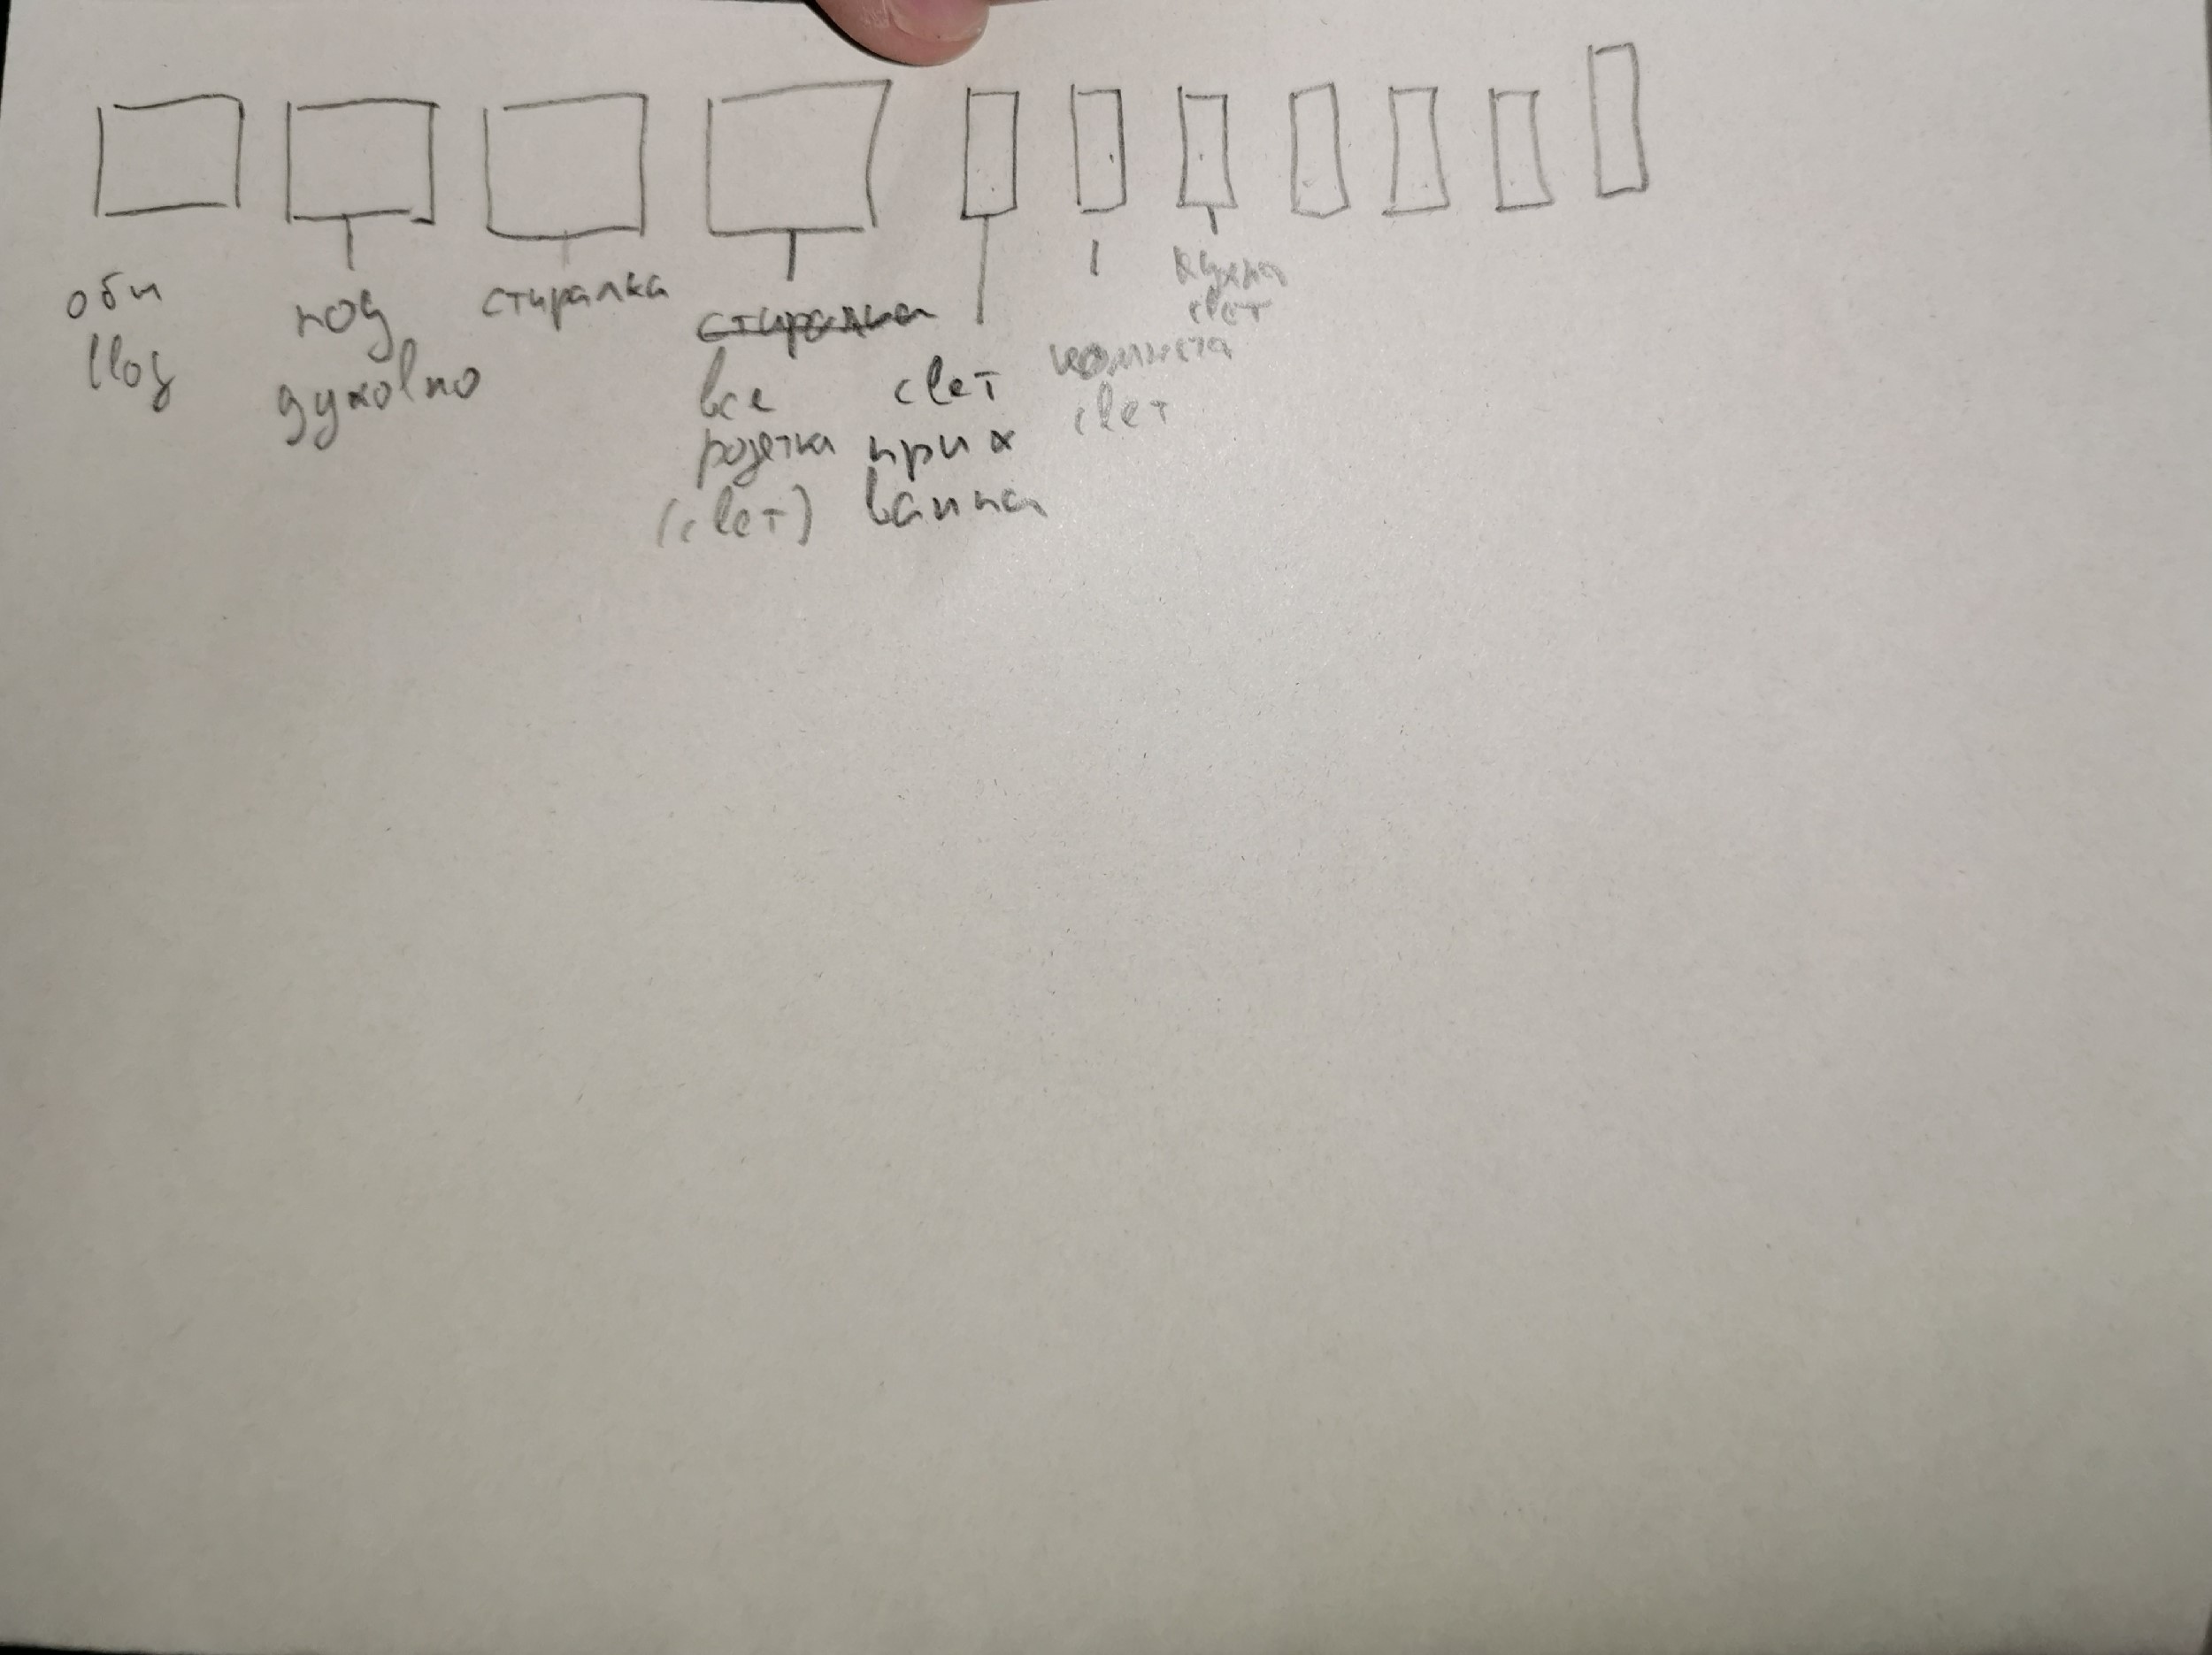 общ
ввод
под
духовно
стиралка
стиралка
все
розетки
(свет)
свет
прих
ванна
комната
свет
кухня
свет